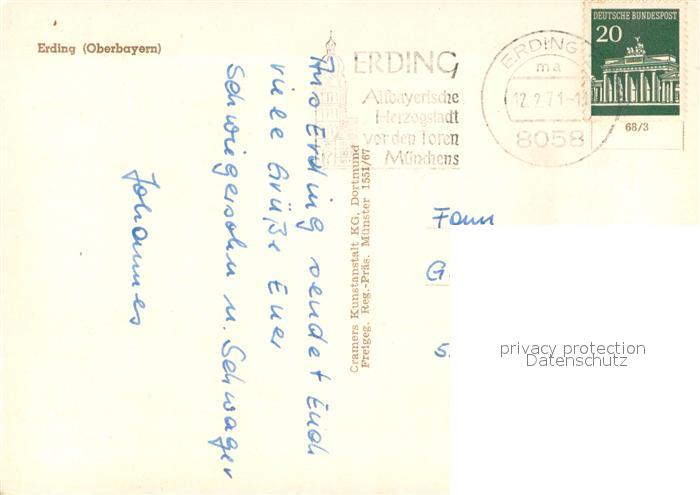 Erding (Oberbayern)
Aus Erding sendet Euch
viele Grüße Euer
Schwiegersohn u. Schwager
Johannes
Cramers Kunstanstalt KG, Dortmund
Freigeg. Reg.-Präs. Münster 1551/67
ERDING
Altbayerische
Herzogstadt
vor den Toren
Münchens
ERDING
ma
12.2.71-1
8058
DEUTSCHE BUNDESPOST
20
68/3
Fam
G.
5.
privacy protection
Datenschutz